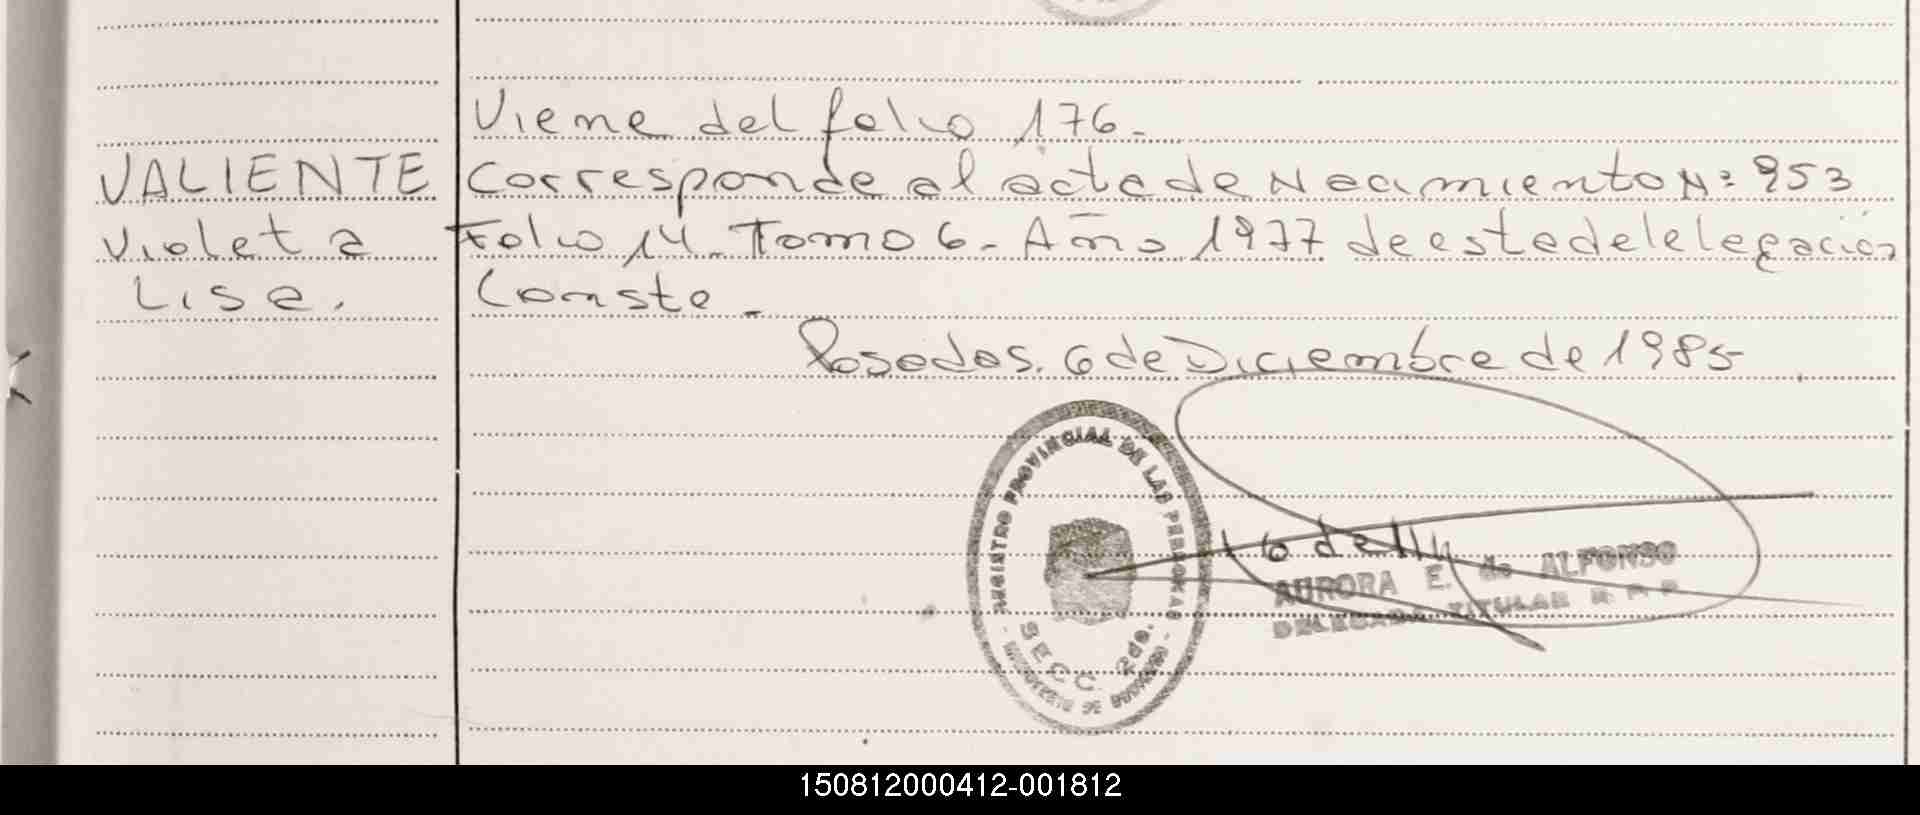 Viene del folio 176.
VALIENTE Corresponde al acta de Nacimiento Nº 953
Violeta Folio 14. Tomo 6 - Año 1977 de esta delelegación
Lisa. Conste.
Posadas. 6 de Diciembre de 1985
REGISTRO PROVINCIAL DE LAS PERSONAS
SECC 2da.
AURORA E. de ALFONSO
DELEGADA TITULAR R. P. P.
150812000412-001812